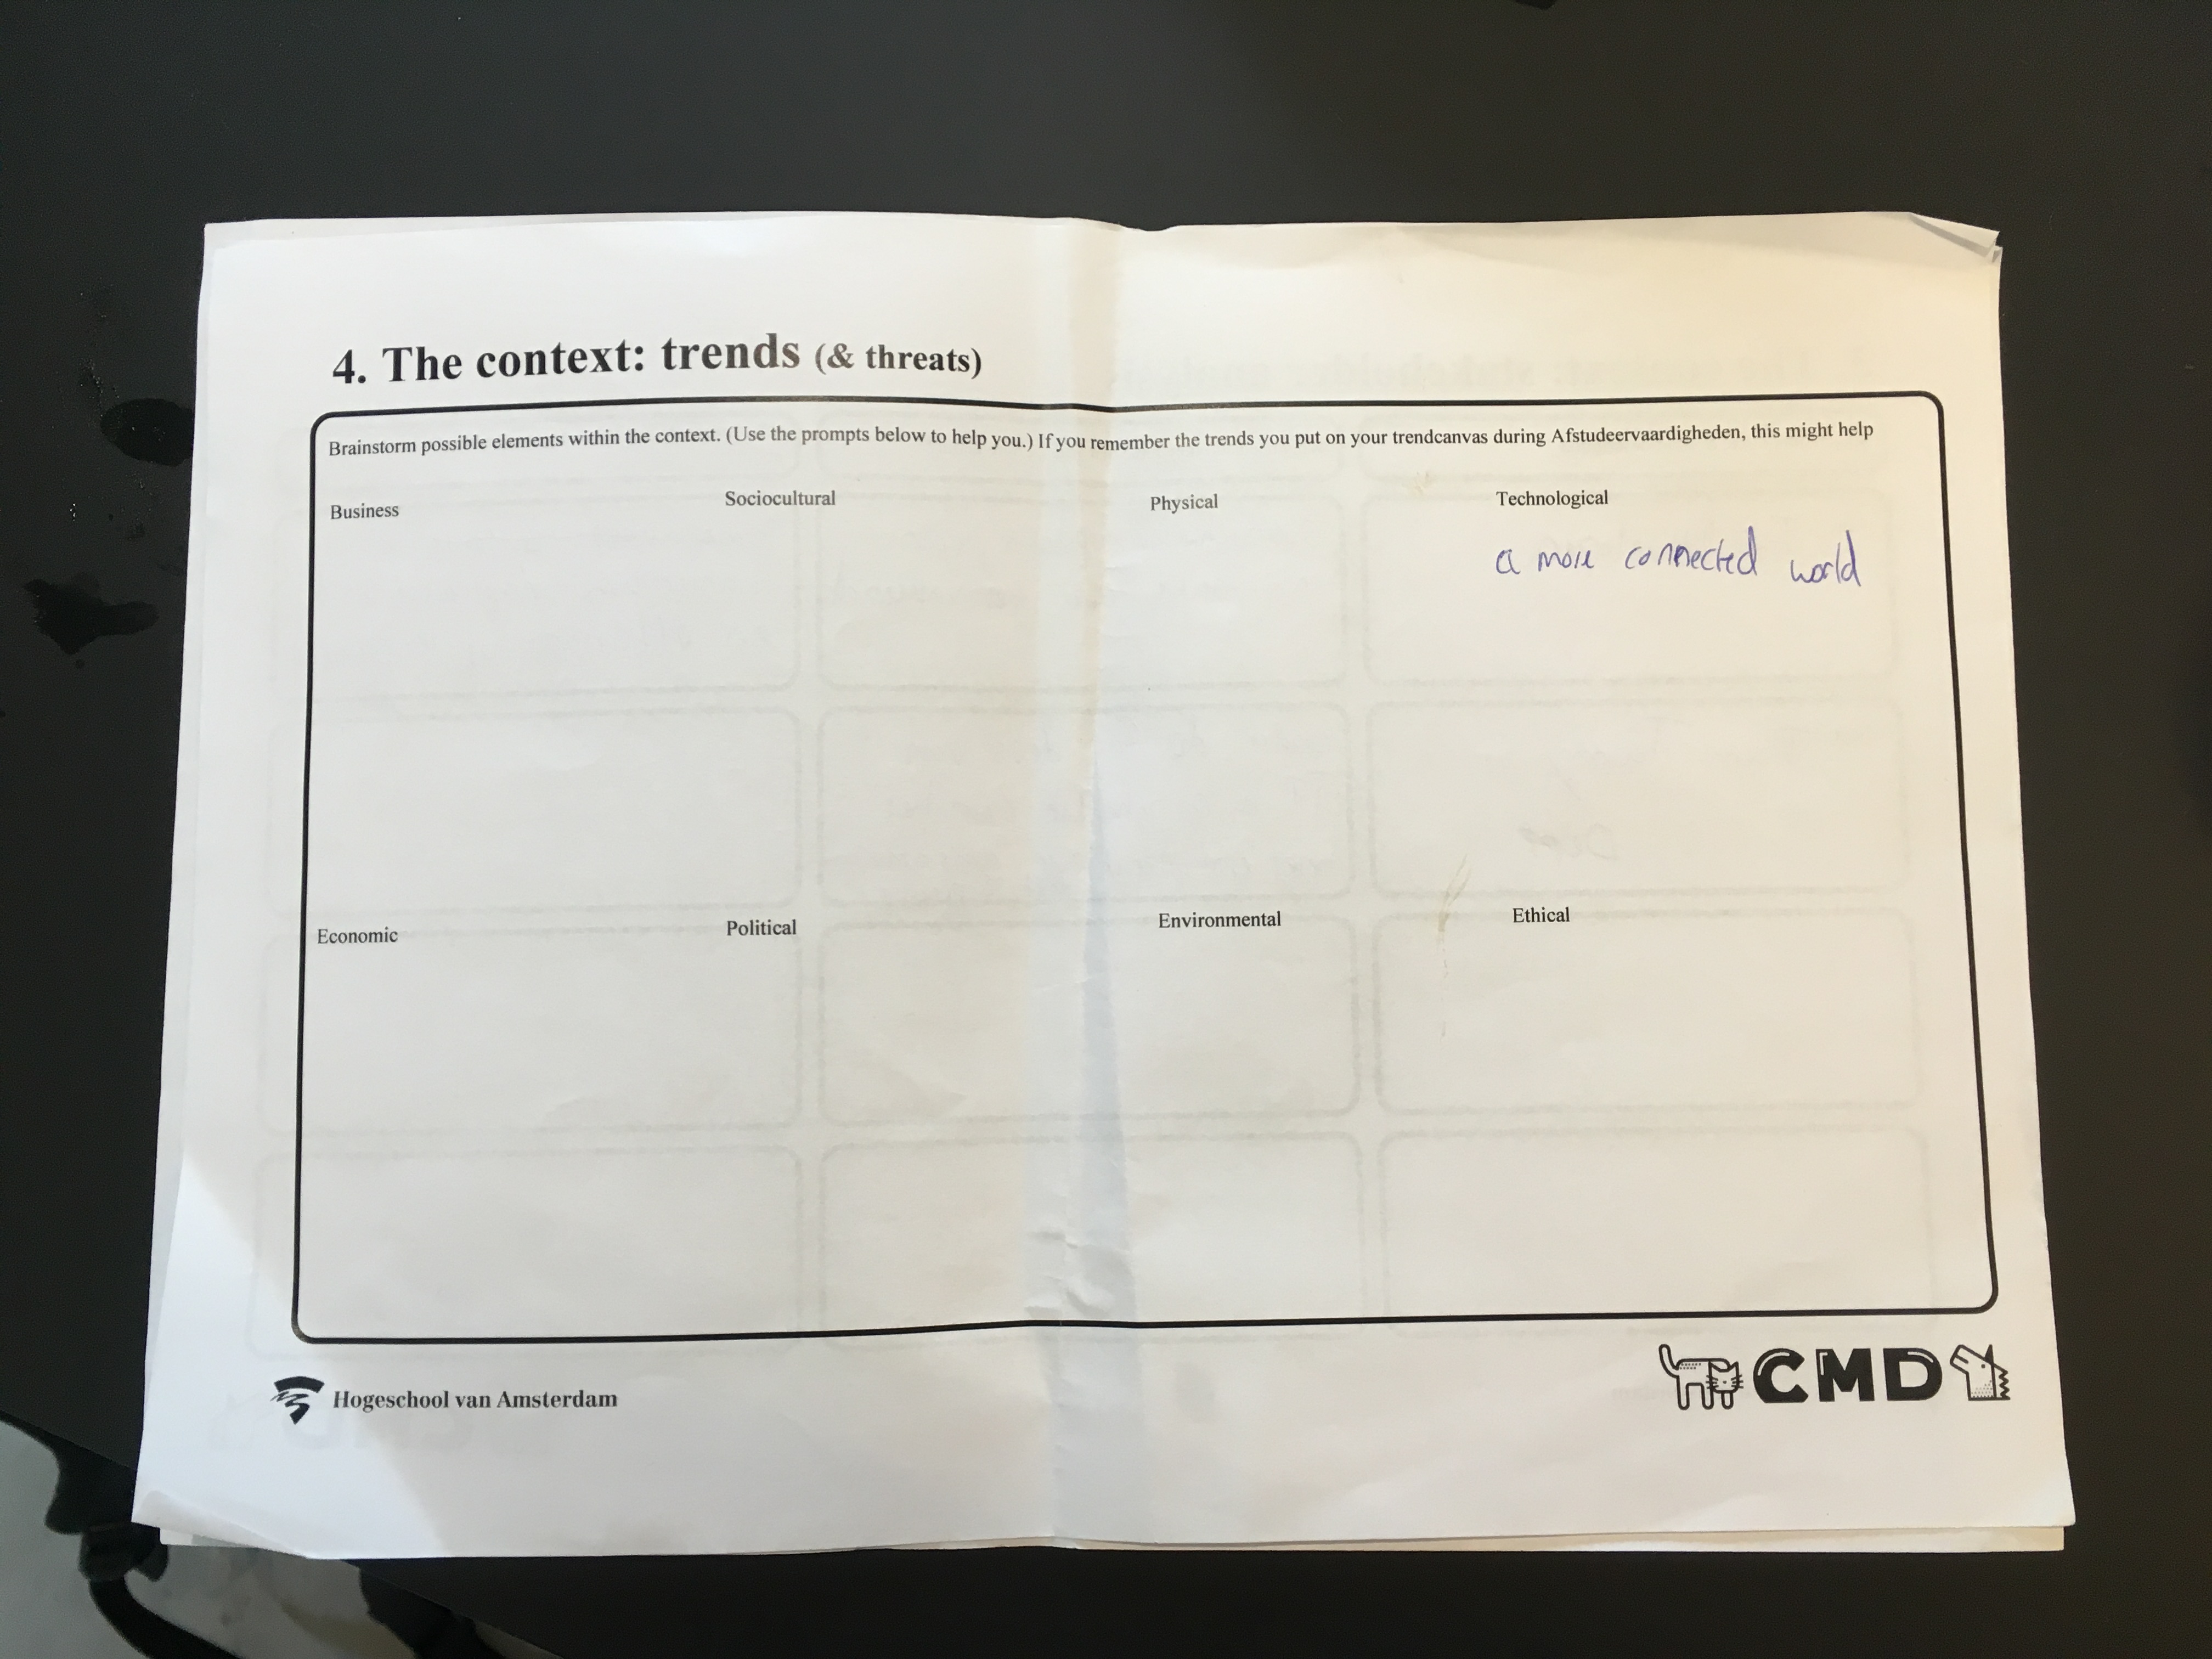 4. The context: trends (& threats)
Brainstorm possible elements within the context. (Use the prompts below to help you.) If you remember the trends you put on your trendcanvas during Afstudeervaardigheden, this might help
Business
Sociocultural
Physical
Technological
a more connected world
Economic
Political
Environmental
Ethical
Hogeschool van Amsterdam
CMD